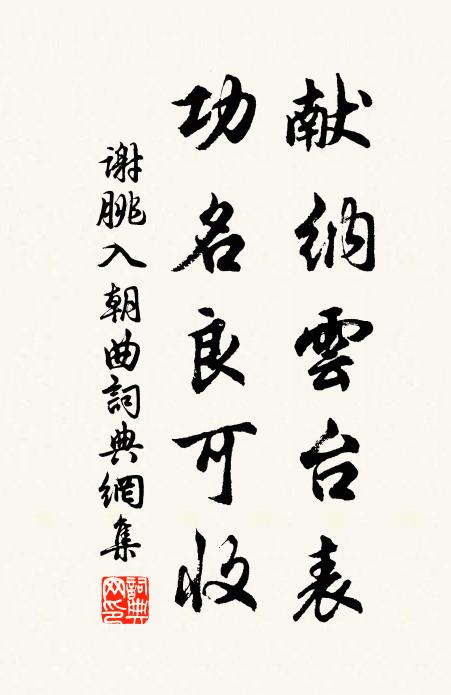 献纳雲台表
功名良可收
谢朓入朝曲詞典網集
詞典
网印